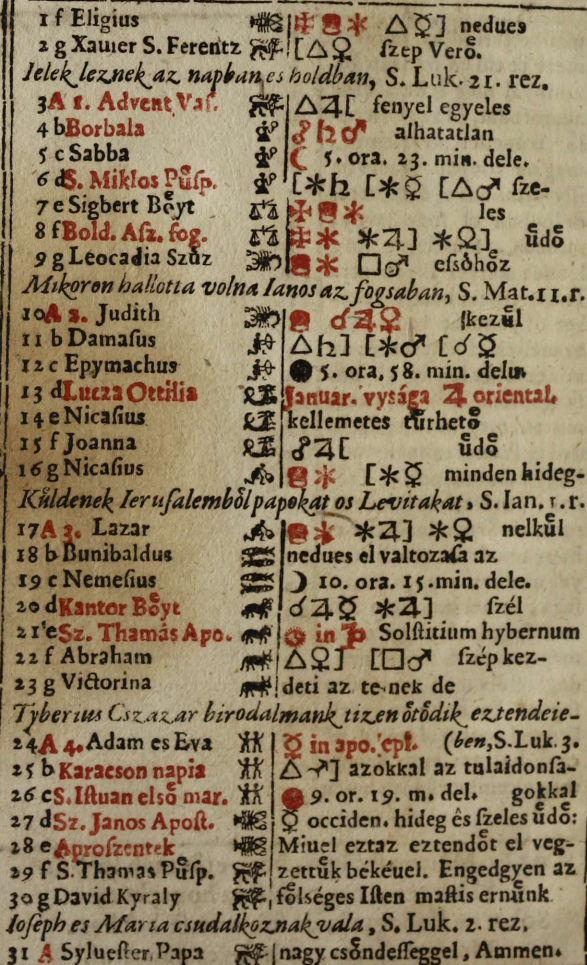 1 f Eligius ✠ ✶ △ ☿] nedues
2 g Xauier S. Ferentz [△♀ ſzep Verö.
Ielek leznek az napban es holdban, S. Luk. 21. rez.
3 A 1. Advent Vaſ. △♃[ fenyel egyeles
4 b Borbala ☍♄♂ alhatatlan
5 c Sabba ☾ 5. ora. 23. min. dele.
6 d S. Miklos Püſp. [✶♄ [✶☿ [△♂ ſze-
7 e Sigbert Böyt ✠ ✶ les
8 f Bold. Aſz. fog. ✠ ✶ ✶♃] ✶♀] üdö
9 g Leocadia Szüz ✶ □♂ eſsöhöz
Mikoron hallotta volna Ianos az fogsaban, S. Mat. 11. r.
10 A 2. Judith ☌♃♀ ſkezül
11 b Damaſus △♄] [✶♂ [☌☿
12 c Epymachus ● 5. ora, 58. min. delu
13 d Lucza Ottilia Januar. vysága ♃ oriental.
14 e Nicaſius kellemetes türhetö
15 f Joanna ☍♃[ üdö
16 g Nicaſius ✶ [✶☿ minden hideg-
Küldenek Ieruſalemböl papokat os Levitakat, S. Ian. 1. r.
17 A 3. Lazar ✶ ✶♃] ✶♀ nelkül
18 b Bunibaldus nedues el valtozaſa az
19 c Nemeſius ☽ 10. ora. 15. min. dele.
20 d Kantor Böyt ☌♃☿ ✶♃] ſzél
21 e Sz. Thamás Apo. ☉ in ♑ Solſtitium hybernum
22 f Abraham △♀] [□♂ ſzép kez-
23 g Victorina deti az te nek de
Tyberius Cszazar birodalmank tizen ötödik eztendeie-
24 A 4. Adam es Eva ☿ in apo. epl. (ben, S. Luk. 3.
25 b Karacson napia △ ] azokkal az tulaidonſa-
26 c S. Iſtuan elsö mar. 9. or. 19. m. del. gokkal
27 d Sz. Janos Apoſt. ☿ occiden. hideg és ſzeles üdö:
28 e Aproſzentek Miuel eztaz eztendöt el veg-
29 f S. Thamas Püſp. zettük békéuel. Engedgyen az
30 g David Kyraly fölséges Iſten maſtis ernünk
Ioſeph es Maria csudalkoznak vala, S. Luk. 2. rez.
31 A Sylueſter, Papa nagy csöndeſſeggel, Ammen.